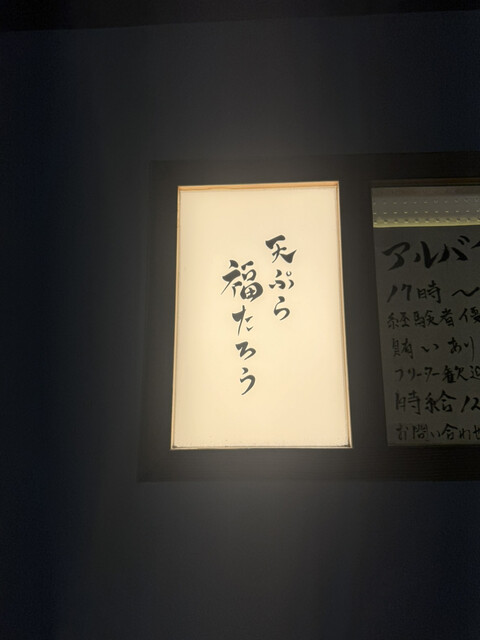 天ぷら
福たろう
アルバイ
17時〜
経験者優
賄いあり
フリーター歓迎
時給12
お問い合わせ